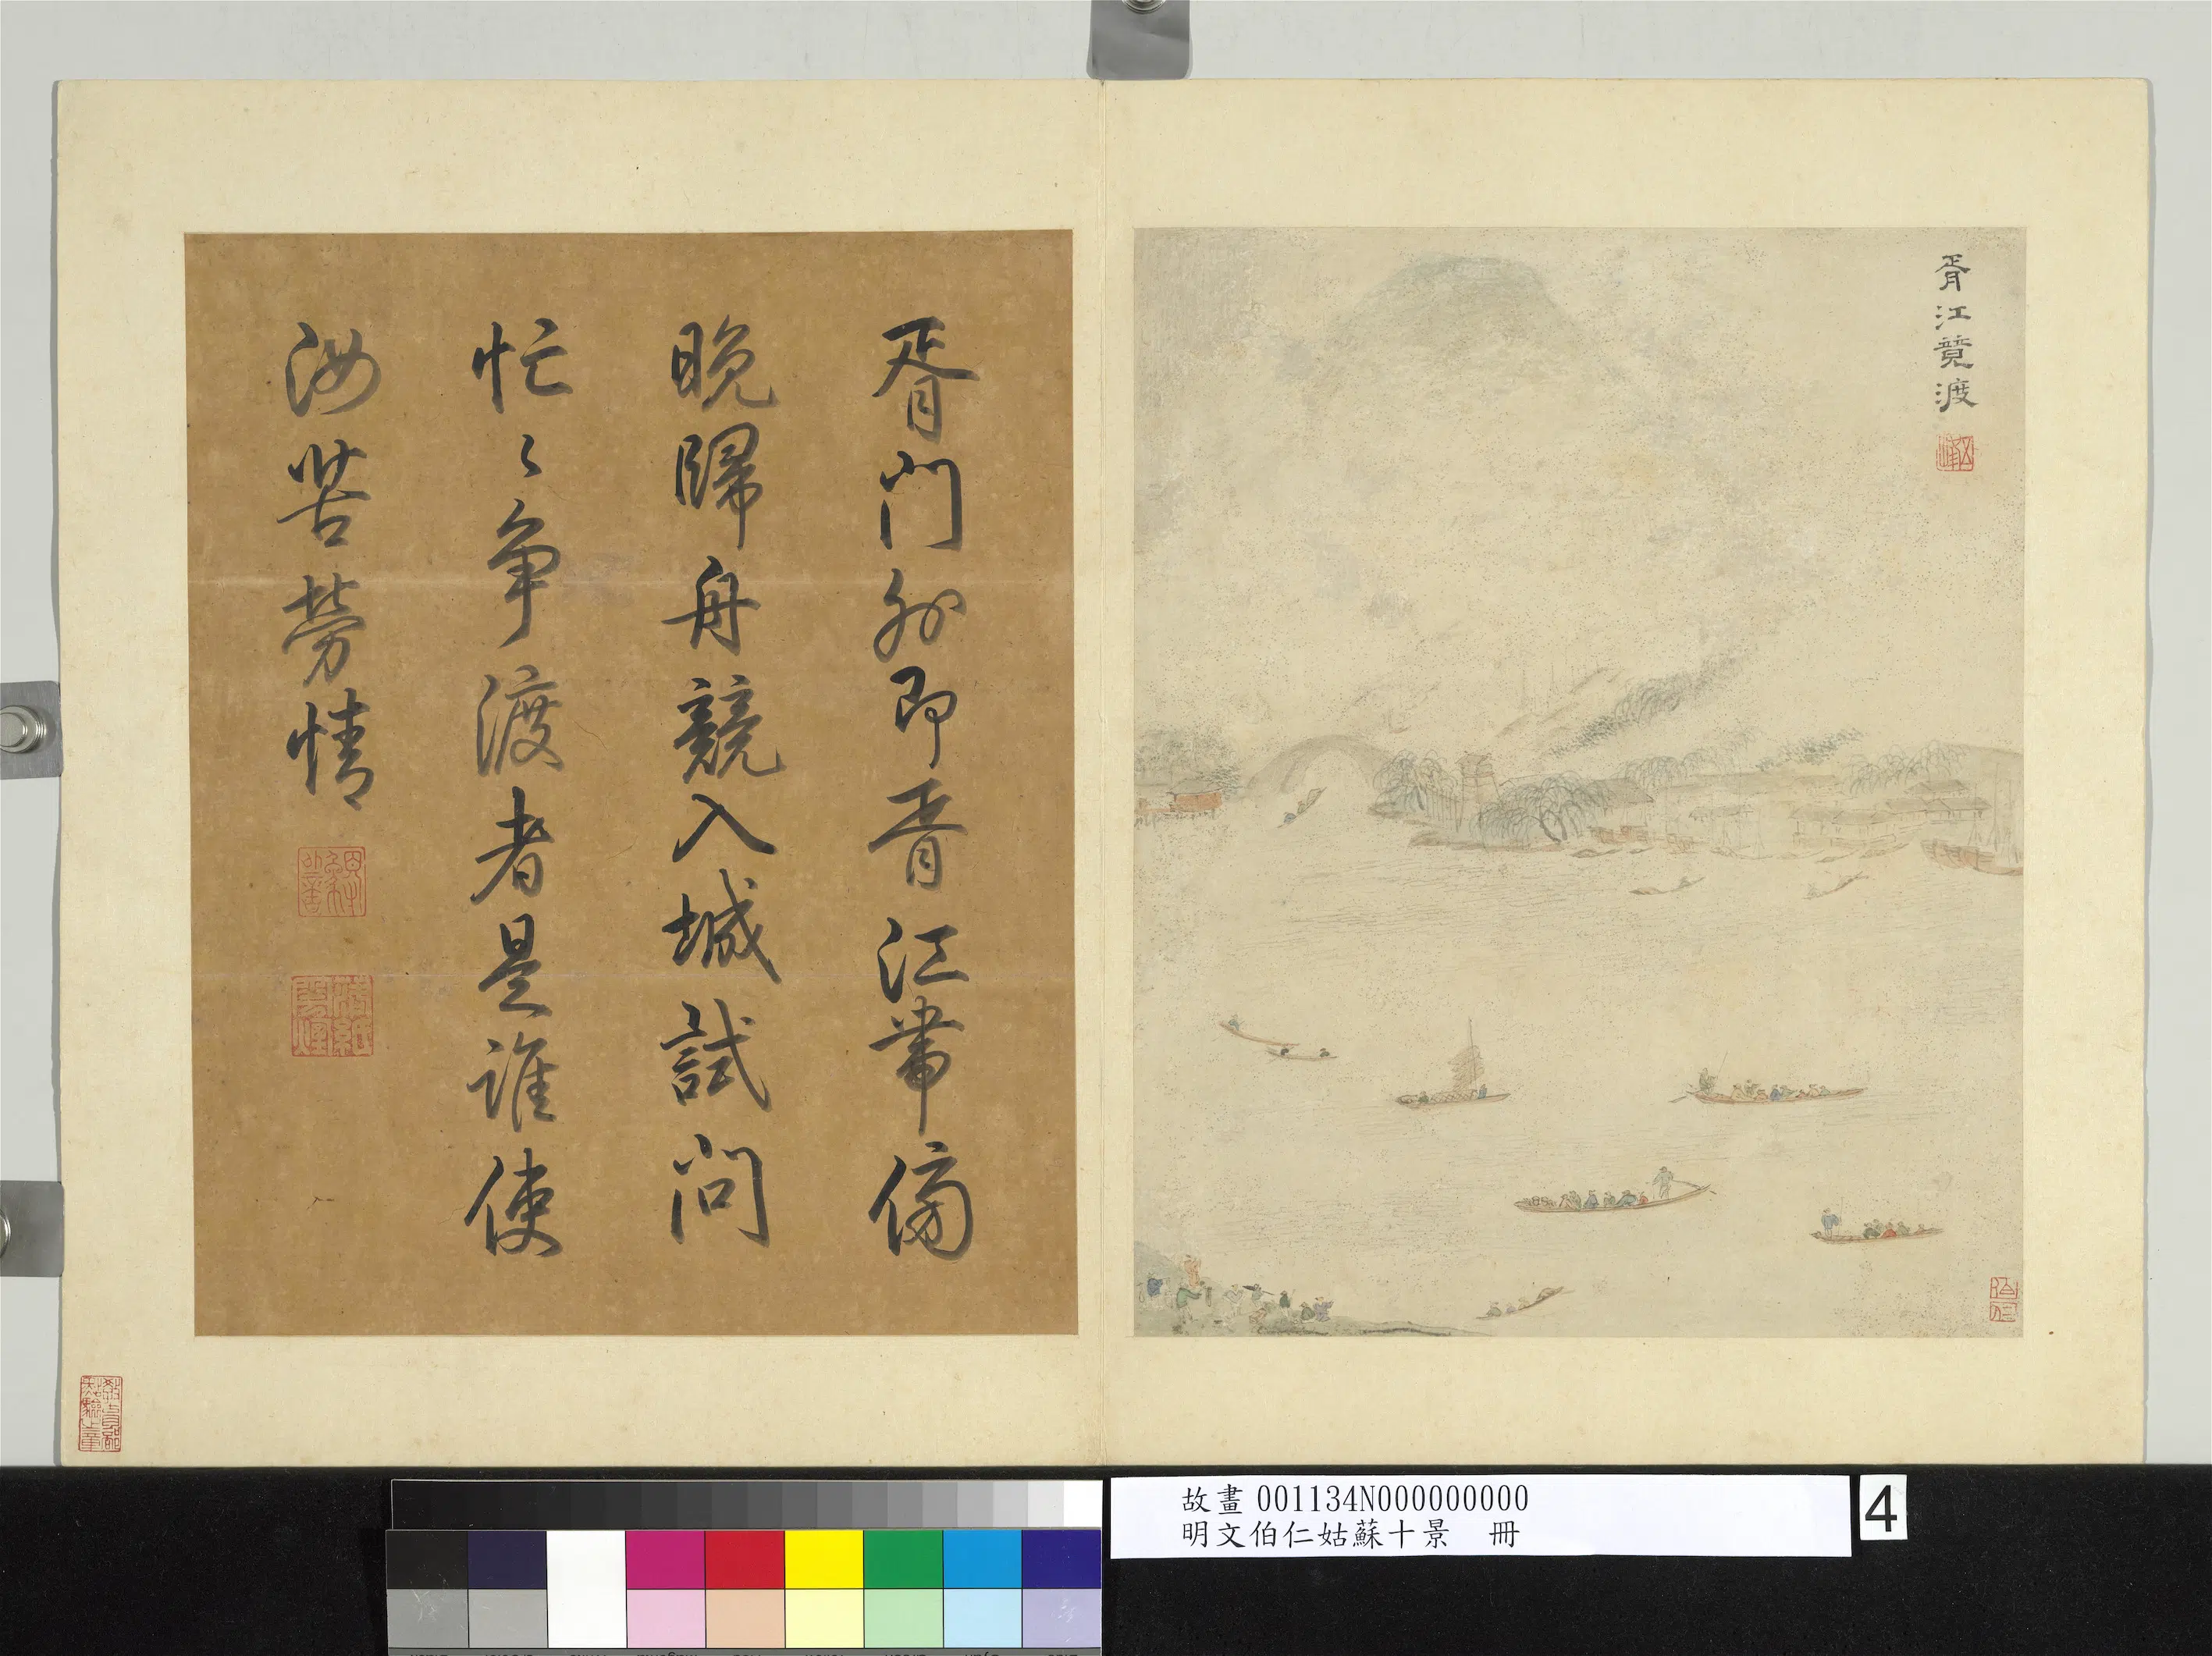 胥江競渡
胥門外即胥江帶傍
晚歸舟競入城試問
忙〻爭渡者是誰使
汝苦勞情
故畫 001134N000000000
明文伯仁姑蘇十景 冊
4